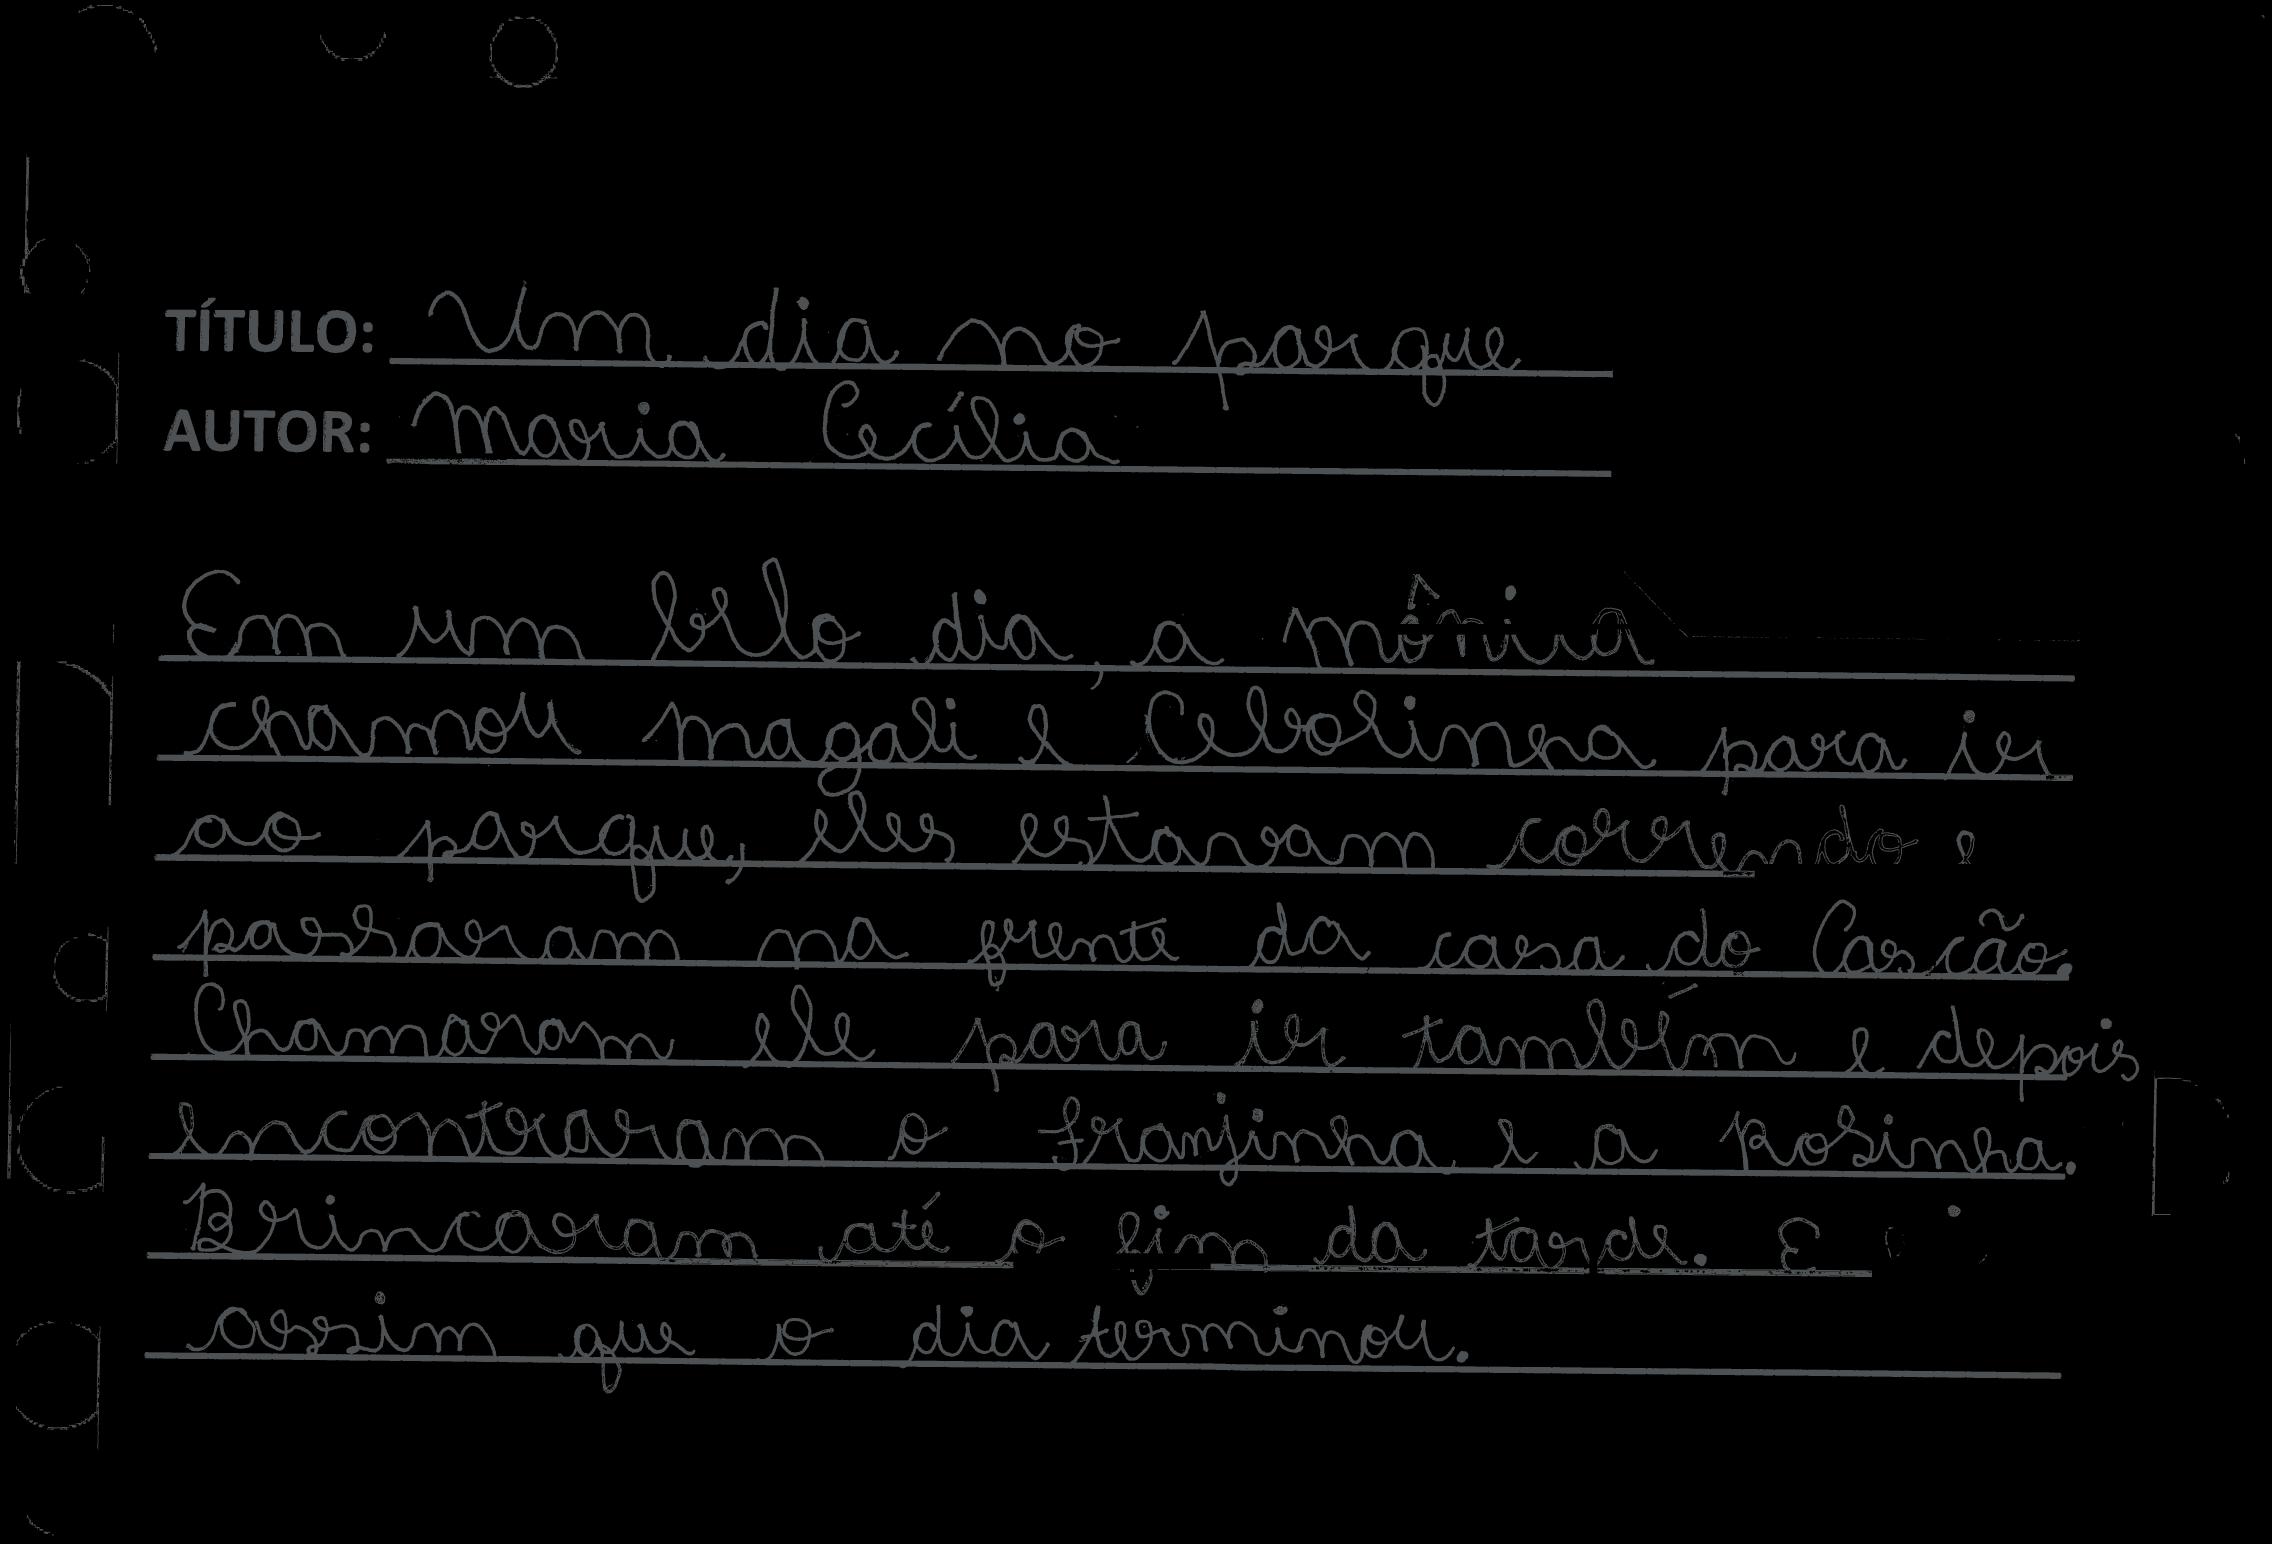 TÍTULO: Um dia no parque
AUTOR: Maria Cecília
Em um belo dia, a mônica
chamou magali e Cebolinha para ir
ao parque, eles estavam correndo e
passaram na frente da casa do Cascão.
Chamaram ele para ir também e depois
encontraram o franjinha e a Rosinha.
Brincaram até o fim da tarde. E
assim que o dia terminou.